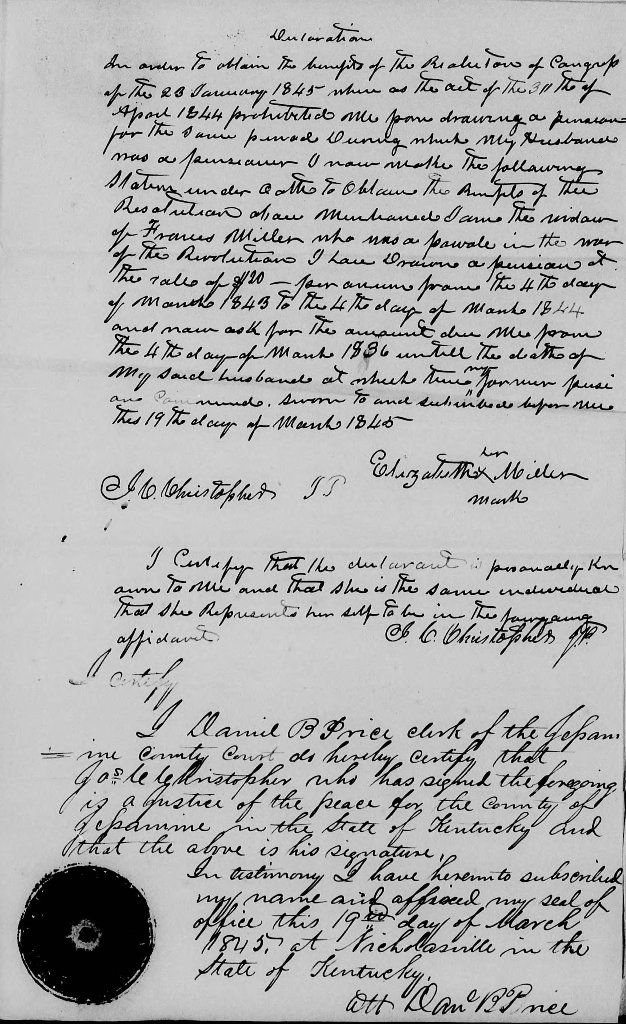 Declaration
In order to obtain the benefits of the Resolution of Congress
of the 23 January 1845 where as the act of the 30th of
April 1844 prohibited Me from drawing a pension
for the same period During which My Husband
was a pensioner I now make the following
Statem under oath to Obtain the Benefits of the
Resolution above Mentioned I am the widow
of Frances Miller who was a private in the war
of the Revolution I have Drawn a pension at
the rate of $20 — per annum from the 4th day
of March 1843 to the 4th day of March 1844
and now ask for the amount due Me from
the 4th day of March 1836 untill the death of
My said husband at which time my former pensi
on Commenced. Sworn to and subscribed before me
this 19th day of March 1845
her
Elizabeth X Miller
mark
J. C. Christopher JP
I Certify that the declarant is personally Kn
own to Me and that she is the same individual
that she Represents her self to be in the foregoing
affidavit
J. C. Christopher J.P.
I certify
I Daniel B Price clerk of the Jessam
ine County Court do hereby certify that
Jos. C Christopher who has signed the foregoing
is a Justice of the peace for the County of
Jessamine in the State of Kentucky and
that the above is his signature.
In testimony I have hereunto subscribed
my name and affixed my seal of
office this 19th day of March
1845. at Nicholasville in the
State of Kentucky.
Att Danl B Price